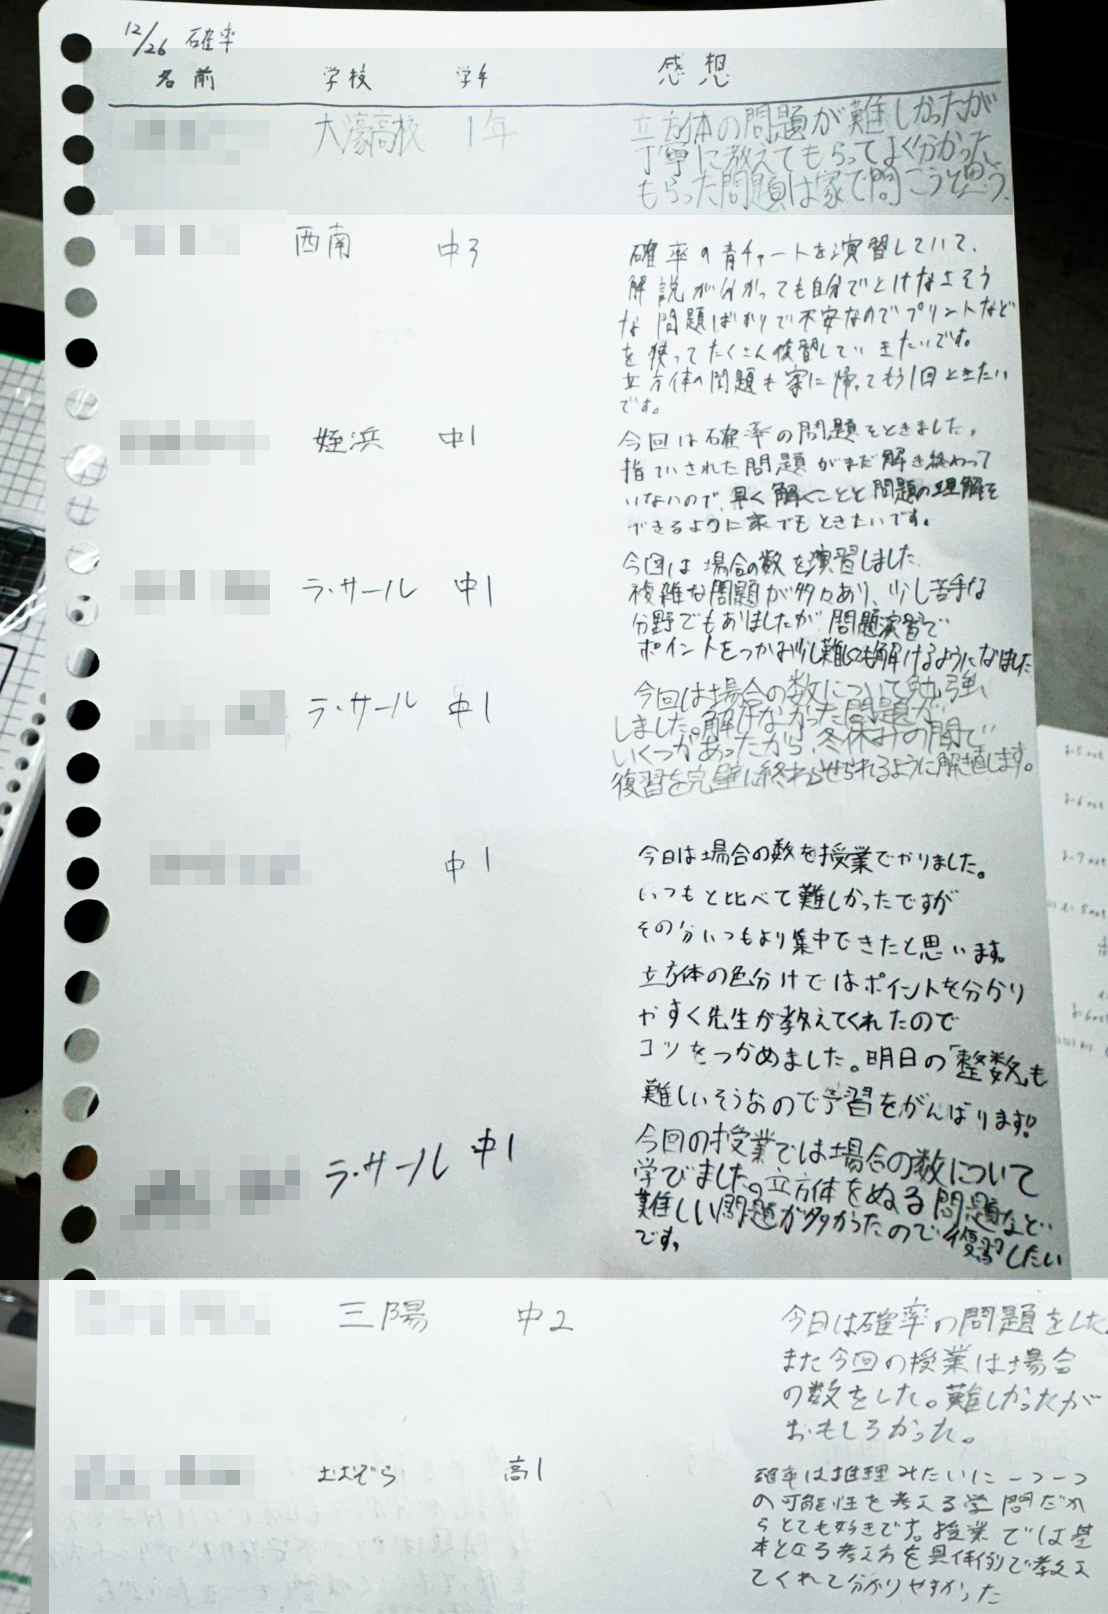 12/26 確率
名前 学校 学年 感想
大濠高校 1年 立方体の問題が難しかったが
丁寧に教えてもらってよく分かった。
もらった問題は家で問こうと思う。
西南 中3 確率の青チャートを演習していて、
解説が分かっても自分でとけなさそう
な問題ばかりで不安なのでプリントなど
を使ってたくさん復習していきたいです。
立方体の問題も家に帰ってもう1回ときたい
です。
姪浜 中1 今回は確率の問題をときました。
指ていされた問題がまだ解き終わって
いないので、早く解くことと問題の理解を
できるように家でもときたいです。
ラ・サール 中1 今回は場合の数を演習しました。
複雑な問題が多々あり、少し苦手な
分野でもありましたが問題演習で
ポイントをつかみ少し難しくも解けるようになりました
ラ・サール 中1 今回は場合の数について勉強
しました。解けなかった問題が
いくつかあったから、冬休みの間で
復習を完璧に終わらせられるように解き直します。
中1 今日は場合の数を授業でやりました。
いつもと比べて難しかったですが
その分いつもより集中できたと思います。
立方体の色分けではポイントを分かり
やすく先生が教えてくれたので
コツをつかめました。明日の「整数」も
難しいそうなので予習をがんばります!
ラ・サール 中1 今回の授業では場合の数について
学びました。立方体をぬる問題など
難しい問題が多かったので復習したい
です。
三陽 中2 今日は確率の問題をした。
また今回の授業は場合
の数をした。難しかったが
おもしろかった。
おおぞら 高1 確率は推理みたいに一つ一つ
の可能性を考える学問だか
らとても好きです。授業では基
本となる考え方を具体例で教え
てくれて分かりやすかった